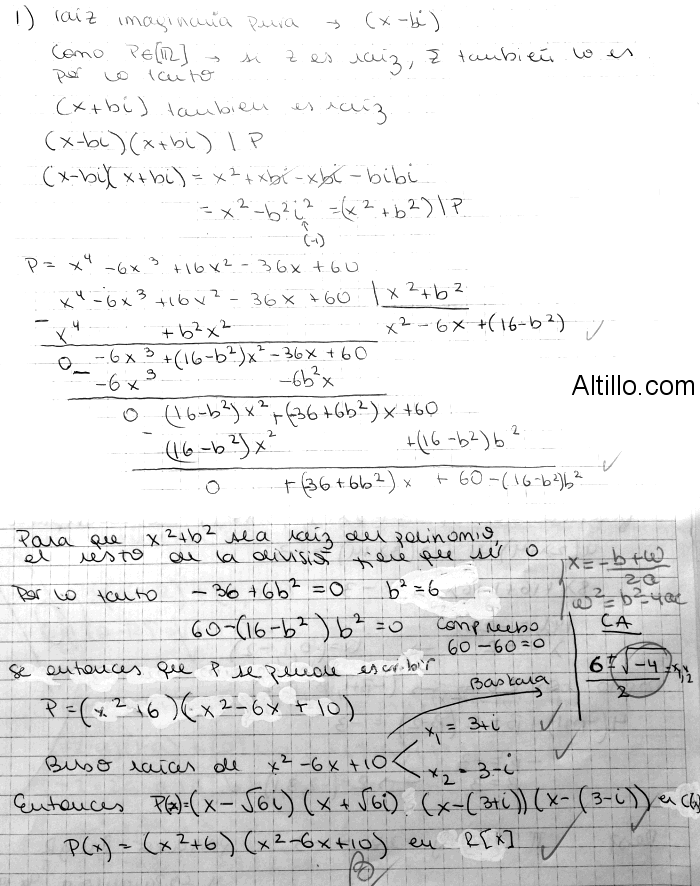 1) raíz imaginaria pura → (x-bi)
Como P∈[ℝ] → si z es raíz, z̄ también lo es
por lo tanto
(x+bi) también es raíz
(x-bi)(x+bi) | P
(x-bi)(x+bi) = x² + xbi - xbi - bibi
= x² - b²i² = (x² + b²) | P
(-1)
P = x⁴ - 6x³ + 16x² - 36x + 60
x⁴ - 6x³ + 16x² - 36x + 60 | x² + b²
- x⁴ + b²x² x² - 6x + (16-b²) ✓
0 - 6x³ + (16-b²)x² - 36x + 60
- -6x³ -6b²x
Altillo.com
0 (16-b²)x² + (-36+6b²)x + 60
- (16-b²)x² + (16-b²)b²
0 + (-36+6b²)x + 60 - (16-b²)b² ✓
Para que x²+b² sea raíz del polinomio,
el resto de la división tiene que ser 0
x = -b+ω / 2a
ω² = b²-4ac
Por lo tanto -36 + 6b² = 0 b² = 6
60 - (16-b²)b² = 0 compruebo
60 - 60 = 0
CA
6 ± √-4 / 2 = x₁,₂
Se entonces que P se puede escribir
P = (x²+6)(x²-6x+10)
Baskara
x₁ = 3+i ✓
Busco raíces de x²-6x+10
x₂ = 3-i ✓
Entonces P(x) = (x-√6i)(x+√6i)(x-(3+i))(x-(3-i)) en C[x]
P(x) = (x²+6)(x²-6x+10) en R[x] ✓ ✓